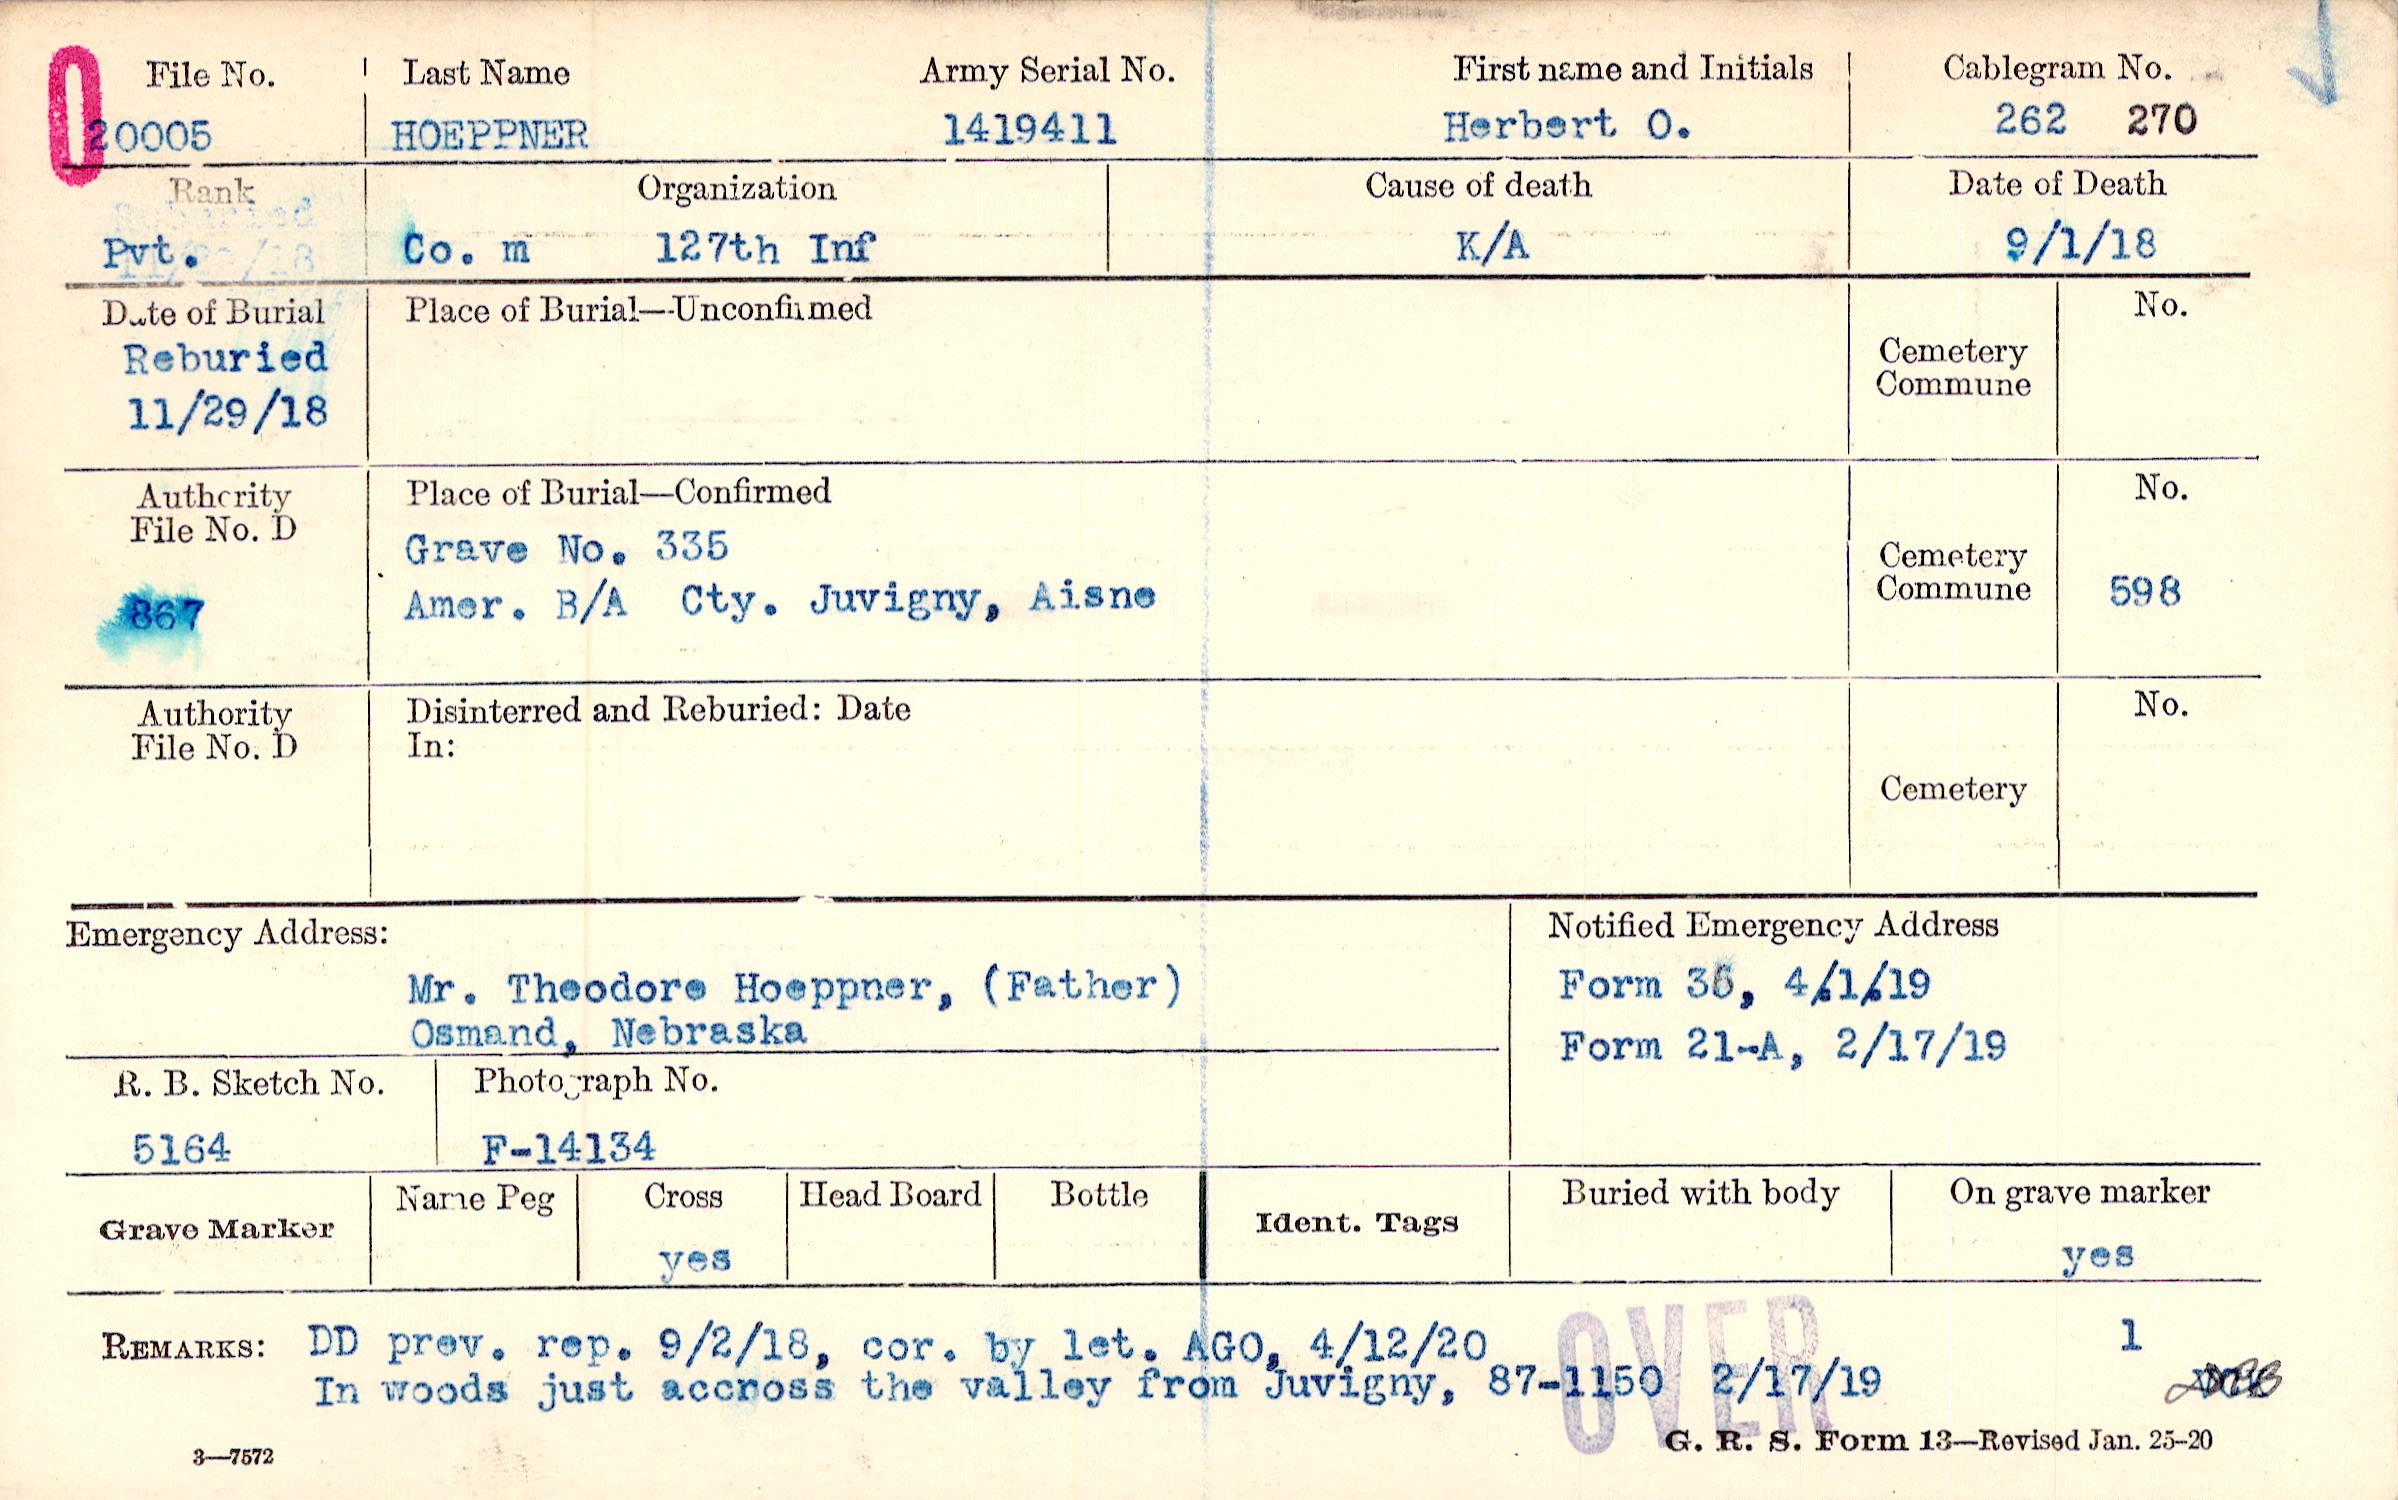 File No. Last Name Army Serial No. First name and Initials Cablegram No.
20005 HOEPPNER 1419411 Herbert O. 262 270
Rank Organization Cause of death Date of Death
Pvt. Co. m 127th Inf K/A 9/1/18
Date of Burial Place of Burial—Unconfirmed No.
Reburied
11/29/18
Cemetery
Commune
Authority Place of Burial—Confirmed No.
File No. D
Grave No. 335
867 Amer. B/A Cty. Juvigny, Aisne
Cemetery
Commune 598
Authority Disinterred and Reburied: Date No.
File No. D In:
Cemetery
Emergency Address: Notified Emergency Address
Mr. Theodore Hoeppner, (Father) Form 36, 4/1/19
Osmand, Nebraska
Form 21-A, 2/17/19
R. B. Sketch No. Photograph No.
5164 F-14134
Grave Marker Name Peg Cross Head Board Bottle Ident. Tags Buried with body On grave marker
yes yes
OVER
REMARKS: DD prev. rep. 9/2/18, cor. by let. AGO, 4/12/20 1
In woods just accross the valley from Juvigny, 87-1150 2/17/19
3—7572 G. R. S. Form 13—Revised Jan. 25-20